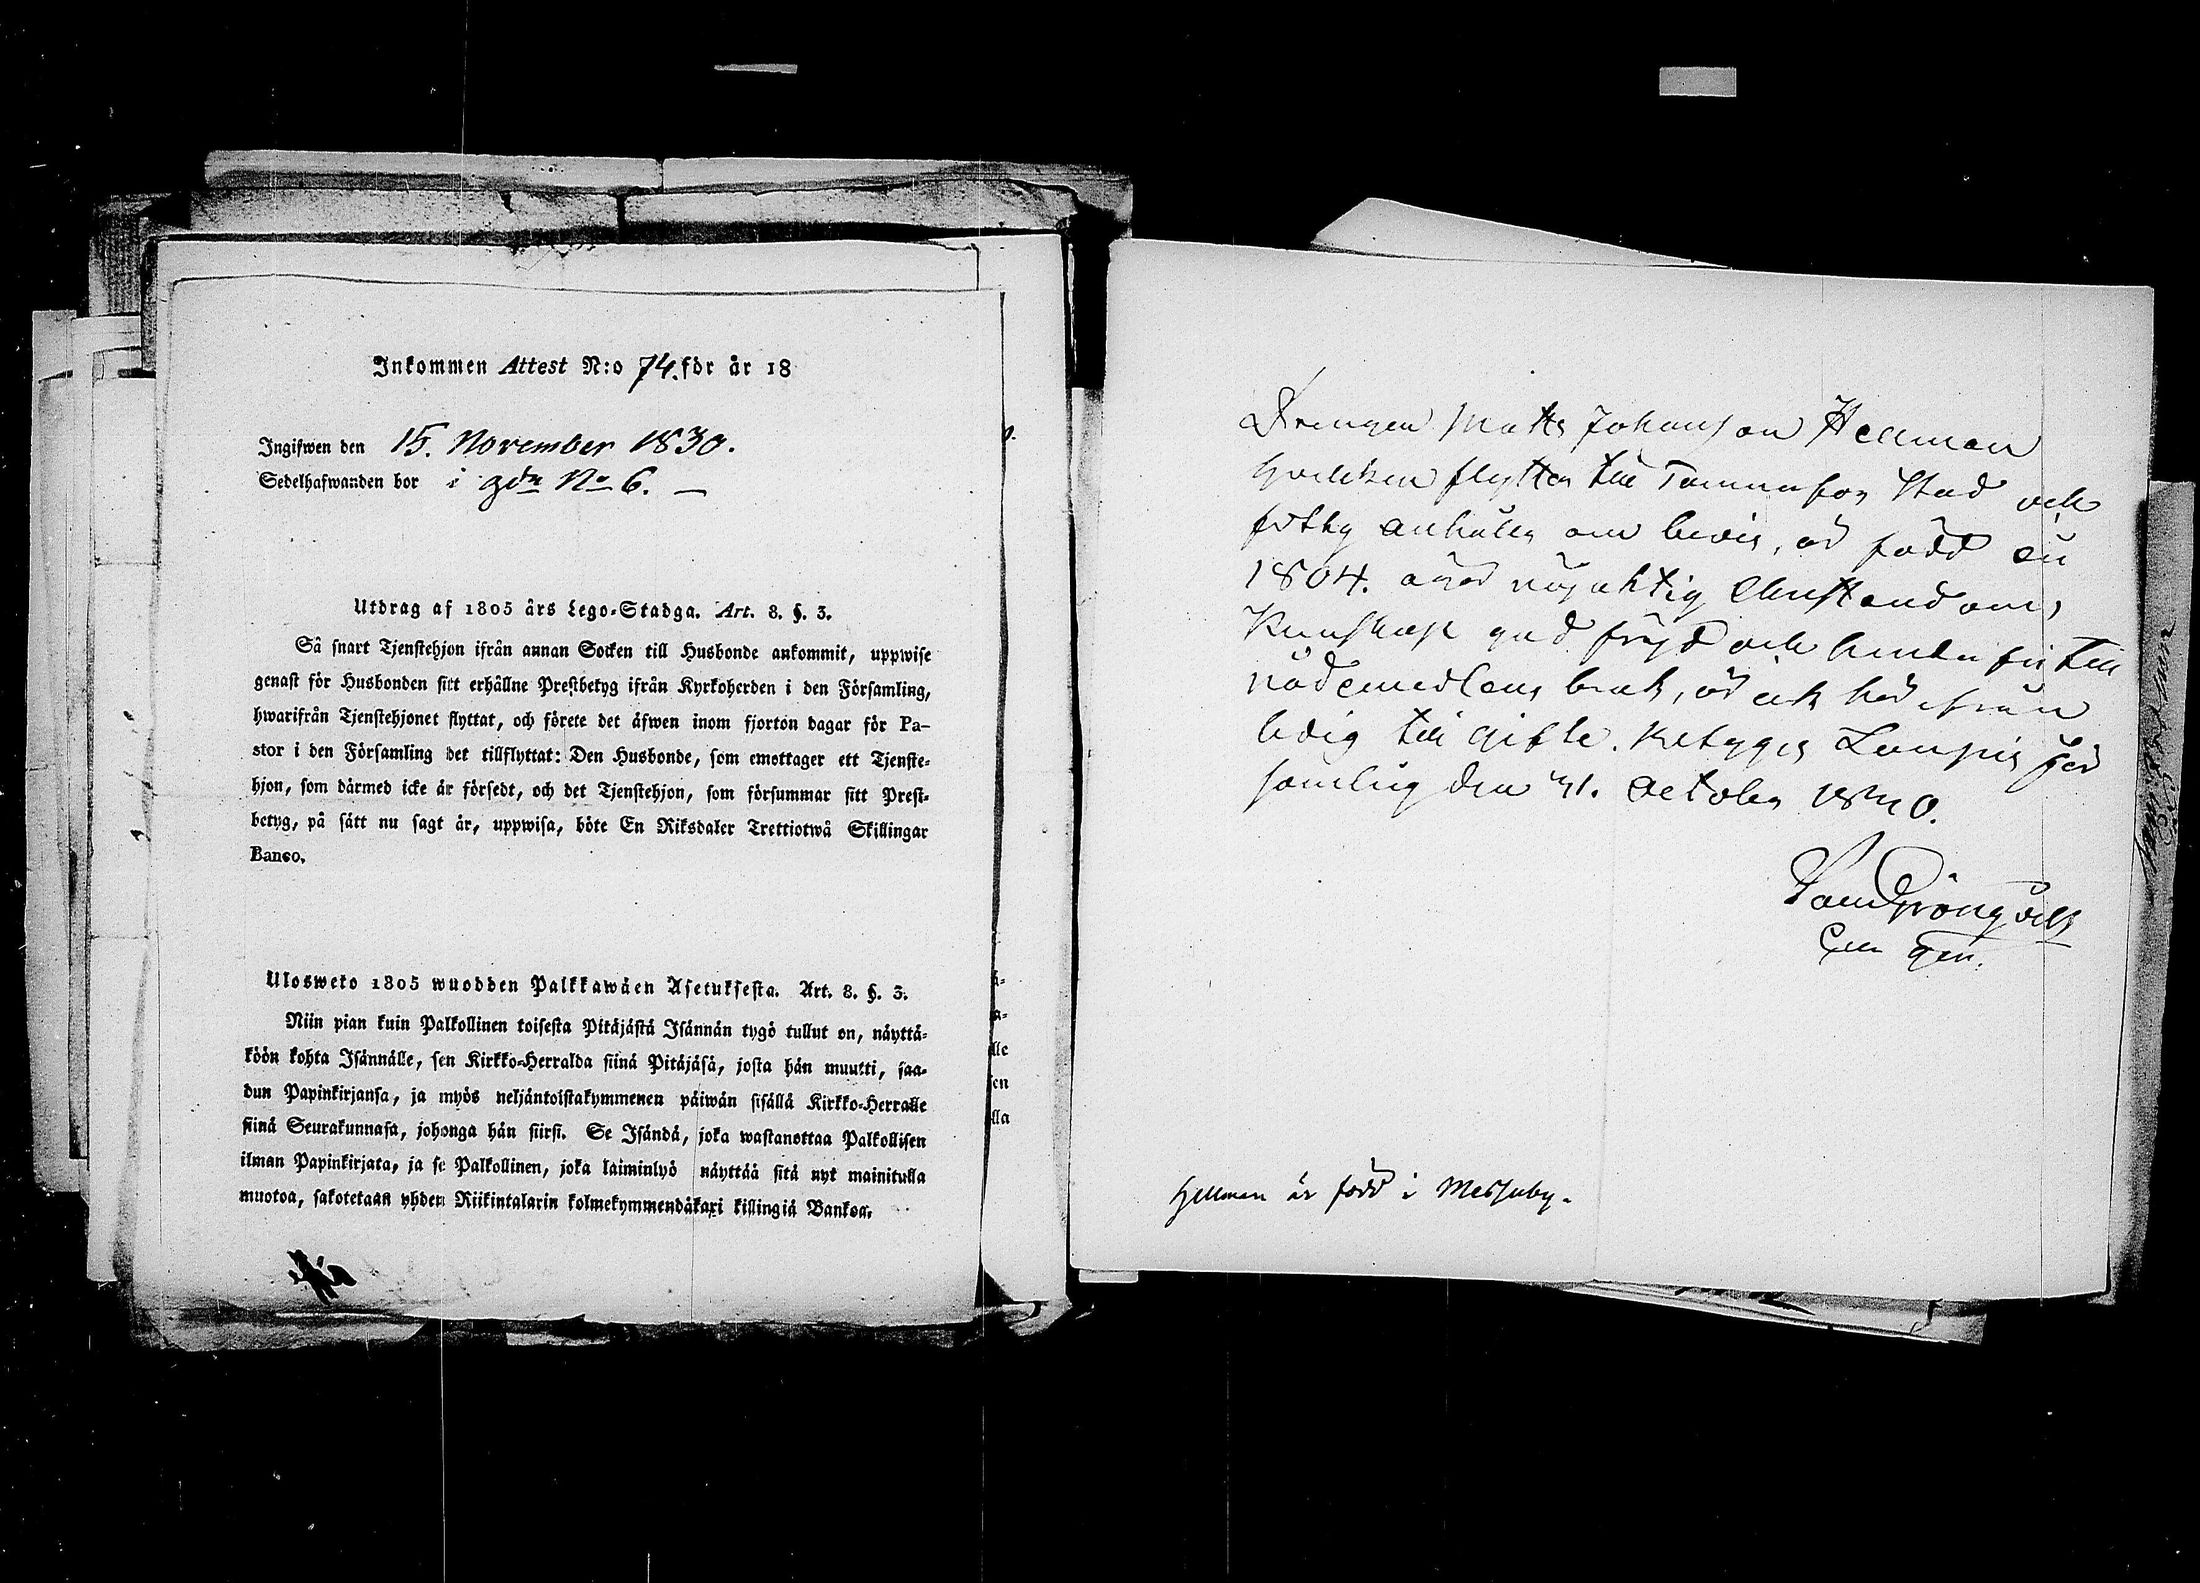 Inkommen Attest N:o 74. för år 18
Ingifwen den 15. November 1830.
Sedelhafwanden bor i gdn No 6. —
Utdrag af 1805 års Lego-Stadga. Art. 8. §. 3.
Så snart Tjenstehjon ifrån annan Socken till Husbonde ankommit, uppwise
genast för Husbonden sitt erhållne Prestbetyg ifrån Kyrkoherden i den Församling,
hwarifrån Tjenstehjonet flyttat, och förete det äfwen inom fjorton dagar för Pa-
stor i den Församling det tillflyttat: Den Husbonde, som emottager ett Tjenste-
hjon, som därmed icke är försedt, och det Tjenstehjon, som försummar sitt Prest-
betyg, på sätt nu sagt är, uppwisa, böte En Riksdaler Trettiotwå Skillingar
Banco.
Ulosweto 1805 wuodden Palkkawäen Asetuksesta. Art. 8. §. 3.
Niin pian kuin Palkollinen toisesta Pitäjästä Isännän tygö tullut on, näyttä-
köön kohta Isännälle, sen Kirkko-Herralda siinä Pitäjäsä, josta hän muutti, saa-
dun Papinkirjansa, ja myös neljäntoistakymmenen päiwän sisällä Kirkko-Herralle
siinä Seurakunnasa, johonga hän siirsi. Se Isändä, joka wastanottaa Palkollisen
ilman Papinkirjata, ja se Palkollinen, joka laiminlyö näyttää sitä nyt mainitulla
muotoa, sakotetaan yhden Riikintalarin kolmekymmendäkaxi killingiä Bankoa.
Drengen Matts Johansson Hellman
hvilken flyttar till Tammerfors Stad och
förthy anhåller om bevis, är född år
1804. äger nöjaktig Christendoms
Kunskap god frejd och hinderfri till
nådemedlens bruk, är ock härifrån
ledig till gifte. Betygas Lempis För
samling den 31. October 1830.
Grönqvist
Hellman är född i Messuby.